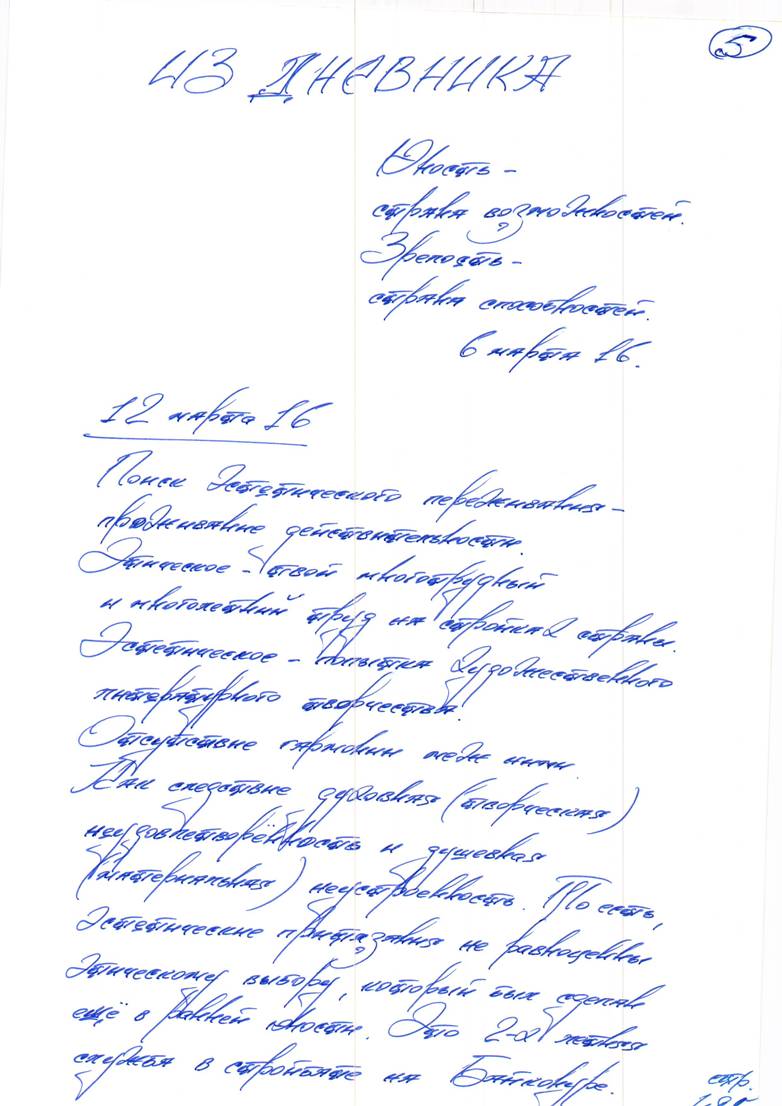 5
ИЗ ДНЕВНИКА
Юность –
страна возможностей.
Зрелость –
страна способностей.
6 марта 16.
12 марта 16
Поиск эстетического переживания –
проживание действительности.
Этическое – твой многотрудный
и многолетний труд на стройках страны.
Эстетическое – попытка художественного
литературного творчества.
Отсутствие гармонии меж ними.
Как следствие духовная (творческая)
неудовлетворённость и душевная
(материальная) неустроенность. То есть,
эстетические притязания не равноценны
этическому выбору, который был сделан
ещё в ранней юности. Это 2-х летняя
служба в стройбате на Байконуре.
стр.